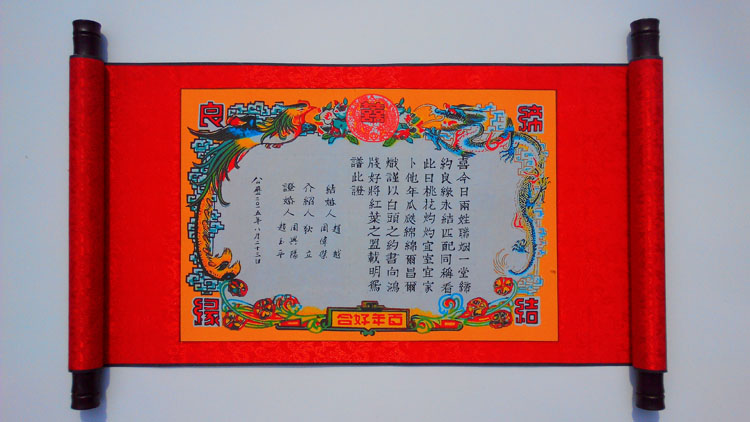 締結良緣
囍
喜今日兩姓聯姻一堂締
約良緣永結匹配同稱看
此日桃花灼灼宜室宜家
卜他年瓜瓞綿綿爾昌爾
熾謹以白頭之約書向鴻
牋好將紅葉之盟載明鴛
譜此證
結婚人 趙越
周偉傑
介紹人 狄立
周興陽
證婚人 趙玉平
公曆二〇一五年八月二十三日
百年好合